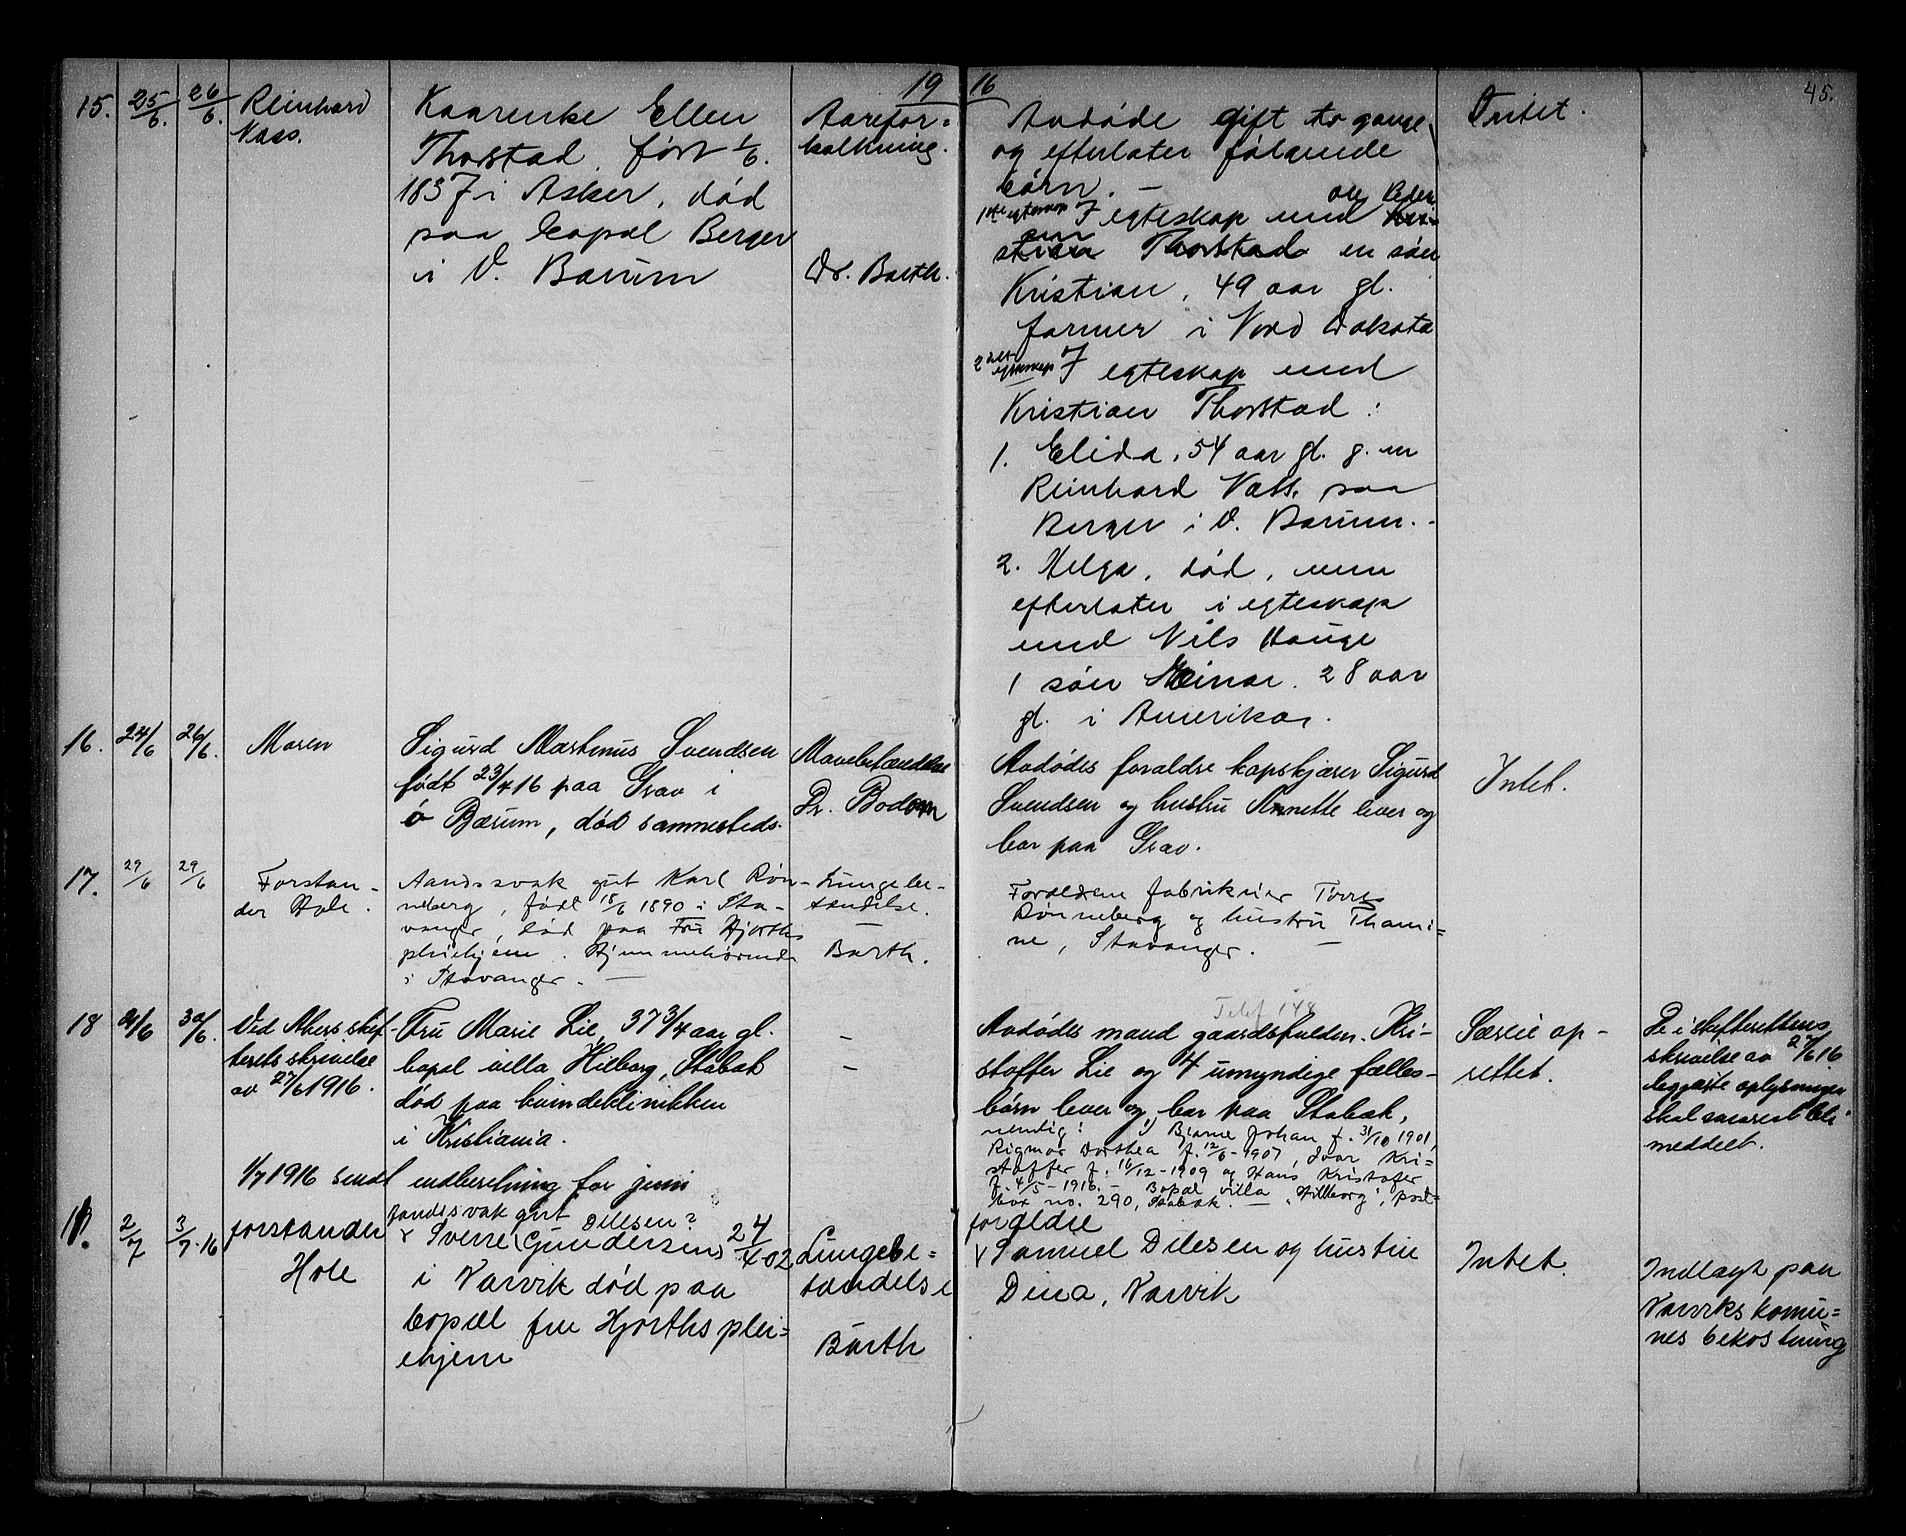 19 16
45.
15. 25/6. 26/6. Reinhard
Næss.
Kaarenke Ellen
Thorstad, født 1/6.
1837 i Asker, død
paa bopæl Berger
i V. Bærum
Aarefor=
kalkning.
Dr. Barth.
Avdøde gift to gange
og efterlater følgende
børn. —
1ste egteskap I egteskap med Ole Peder
sen Thorstad en søn
Kristian, 49 aar gl.
farmer i Nord Dakota
2det egteskap I egteskap med
Kristian Thorstad:
1. Elida, 54 aar gl. g. m
Reinhard Næss, paa
Berger i V. Bærum. -
2. Helga, død, men
efterlater i egteskap
med Nils Hauge
1 søn Einar. 28 aar
gl. i Amerika.
Intet.
16. 24/6 26/6. Maren
Sigurd Marthinus Svendsen
født 23/4 16 paa Grav i
Ø Bærum, død sammesteds.
Mavebetændelse
Dr. Bodom
Avdødes forældre kapskjører Sigurd
Svendsen og hustru Annette lever og
bor paa Grav.
Intet.
17. 29/6 29/6 Forstan-
der Hole.
Aandssvak gut Karl Røn-
neberg, født 18/6 1890 i Sta-
vanger, død paa Fru Hjorths
pleiehjem. Hjemmehørende
i Stavanger. —
Lungebe-
tændelse.
Barth.
Forældrene fabrikeier Torres
Rønneberg og hustru Thomi=
ne, Stavanger. —
18 21/6 30/6. Ved Akers skif-
terets skrivelse
av 27/6 1916.
Fru Marie Lie, 37 3/4 aar gl.
bopæl villa Hilborg, Stabæk
død paa kvindeklinikken
i Kristiania.
-
-
Telef 148
Avdødes mand gaardsfuldm. Kri-
stoffer Lie og 4 umyndige fælles-
børn lever og bor paa Stabæk,
nemlig: Bjarne Johan f. 31/10 1901,
Rigmor Dorthea f. 12/6-1907, Ivar Kri=
stoffer f. 16/12-1909 og Hans Kristofer
f. 4/5-1916. - Bopæl villa "Hillborg", post=
box no. 290, Stabæk. —
Særeie op-
rettet.
De i skifterettens
skrivelse av 27/6 16
begjærte oplysninger
skal snarest bli
meddelt.
1/7 1916 sendt indberetning for juni
19. 2/7 3/7.16 forstander
Hole
Aandssvak gut
Sverre (Gundersen) Dilesen? 24/4 02
i Narvik død paa
bopæl fru Hjorths plei=
ehjem
Lungebe=
tændelse
Barth
forældre
Samuel Dilesen og hustru
Dina, Narvik
Intet.
Indlagt paa
Narviks komu=
nes bekostning